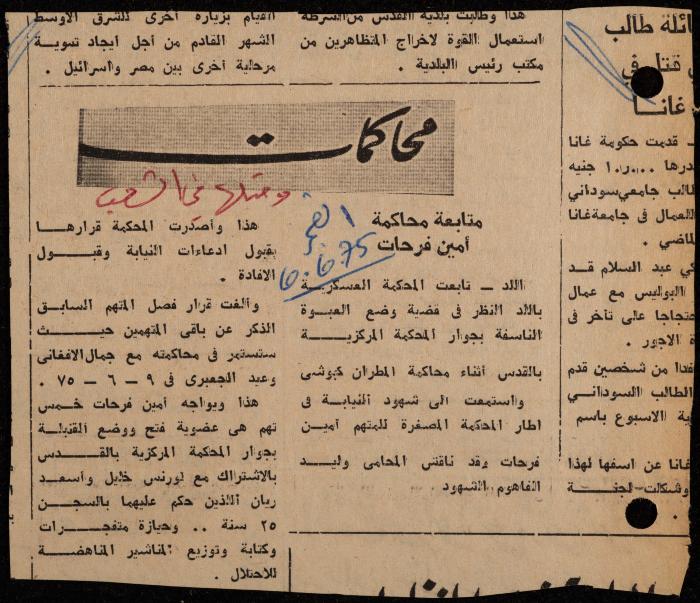 ائلة طالب
قتل في
غانا
ـ قدمت حكومة غانا
درها ١٠٫٠٠٠ جنيه
طالب جامعي سوداني
للعمال في جامعة غانا
ماضي .
كي عبد السلام قد
البوليس مع عمال
حتجاجا على تأخر في
ة الاجور .
فدا من شخصين قدم
الطالب السوداني
ية الاسبوع باسم
غانا عن اسفها لهذا
وشكلت لجنة
هذا وطالبت بلدية القدس من الشرطة
استعمال القوة لاخراج المتظاهرين من
مكتب رئيس البلدية .
القيام بزيارة أخرى للشرق الأوسط
الشهر القادم من أجل ايجاد تسوية
مرحلية أخرى بين مصر واسرائيل .
محاكمات
ومثلها في الشعب
الفجر
٦.٦.75
متابعة محاكمة
أمين فرحات
اللد ــ تابعت المحكمة العسكرية
باللد النظر في قضية وضع العبوة
الناسفة بجوار المحكمة المركزية
بالقدس أثناء محاكمة المطران كبوشي
واستمعت الى شهود النيابة في
اطار المحكمة المصغرة للمتهم أمين
فرحات وقد ناقش المحامي وليد
الفاهوم الشهود .
هذا وأصدرت المحكمة قرارها
بقبول ادعاءات النيابة وقبول
الافادة .
وألغت قرار فصل المتهم السابق
الذكر عن باقي المتهمين حيث
ستستمر في محاكمته مع جمال الافغاني
وعبد الجعبري في ٩ ــ ٦ ــ ٧٥ .
هذا ويواجه أمين فرحات خمس
تهم هي عضوية فتح ووضع القنبلة
بجوار المحكمة المركزية بالقدس
بالاشتراك مع لورنس خليل وأسعد
ريان اللذين حكم عليهما بالسجن
٢٥ سنة .. وحيازة متفجرات
وكتابة وتوزيع المناشير المناهضة
للاحتلال .